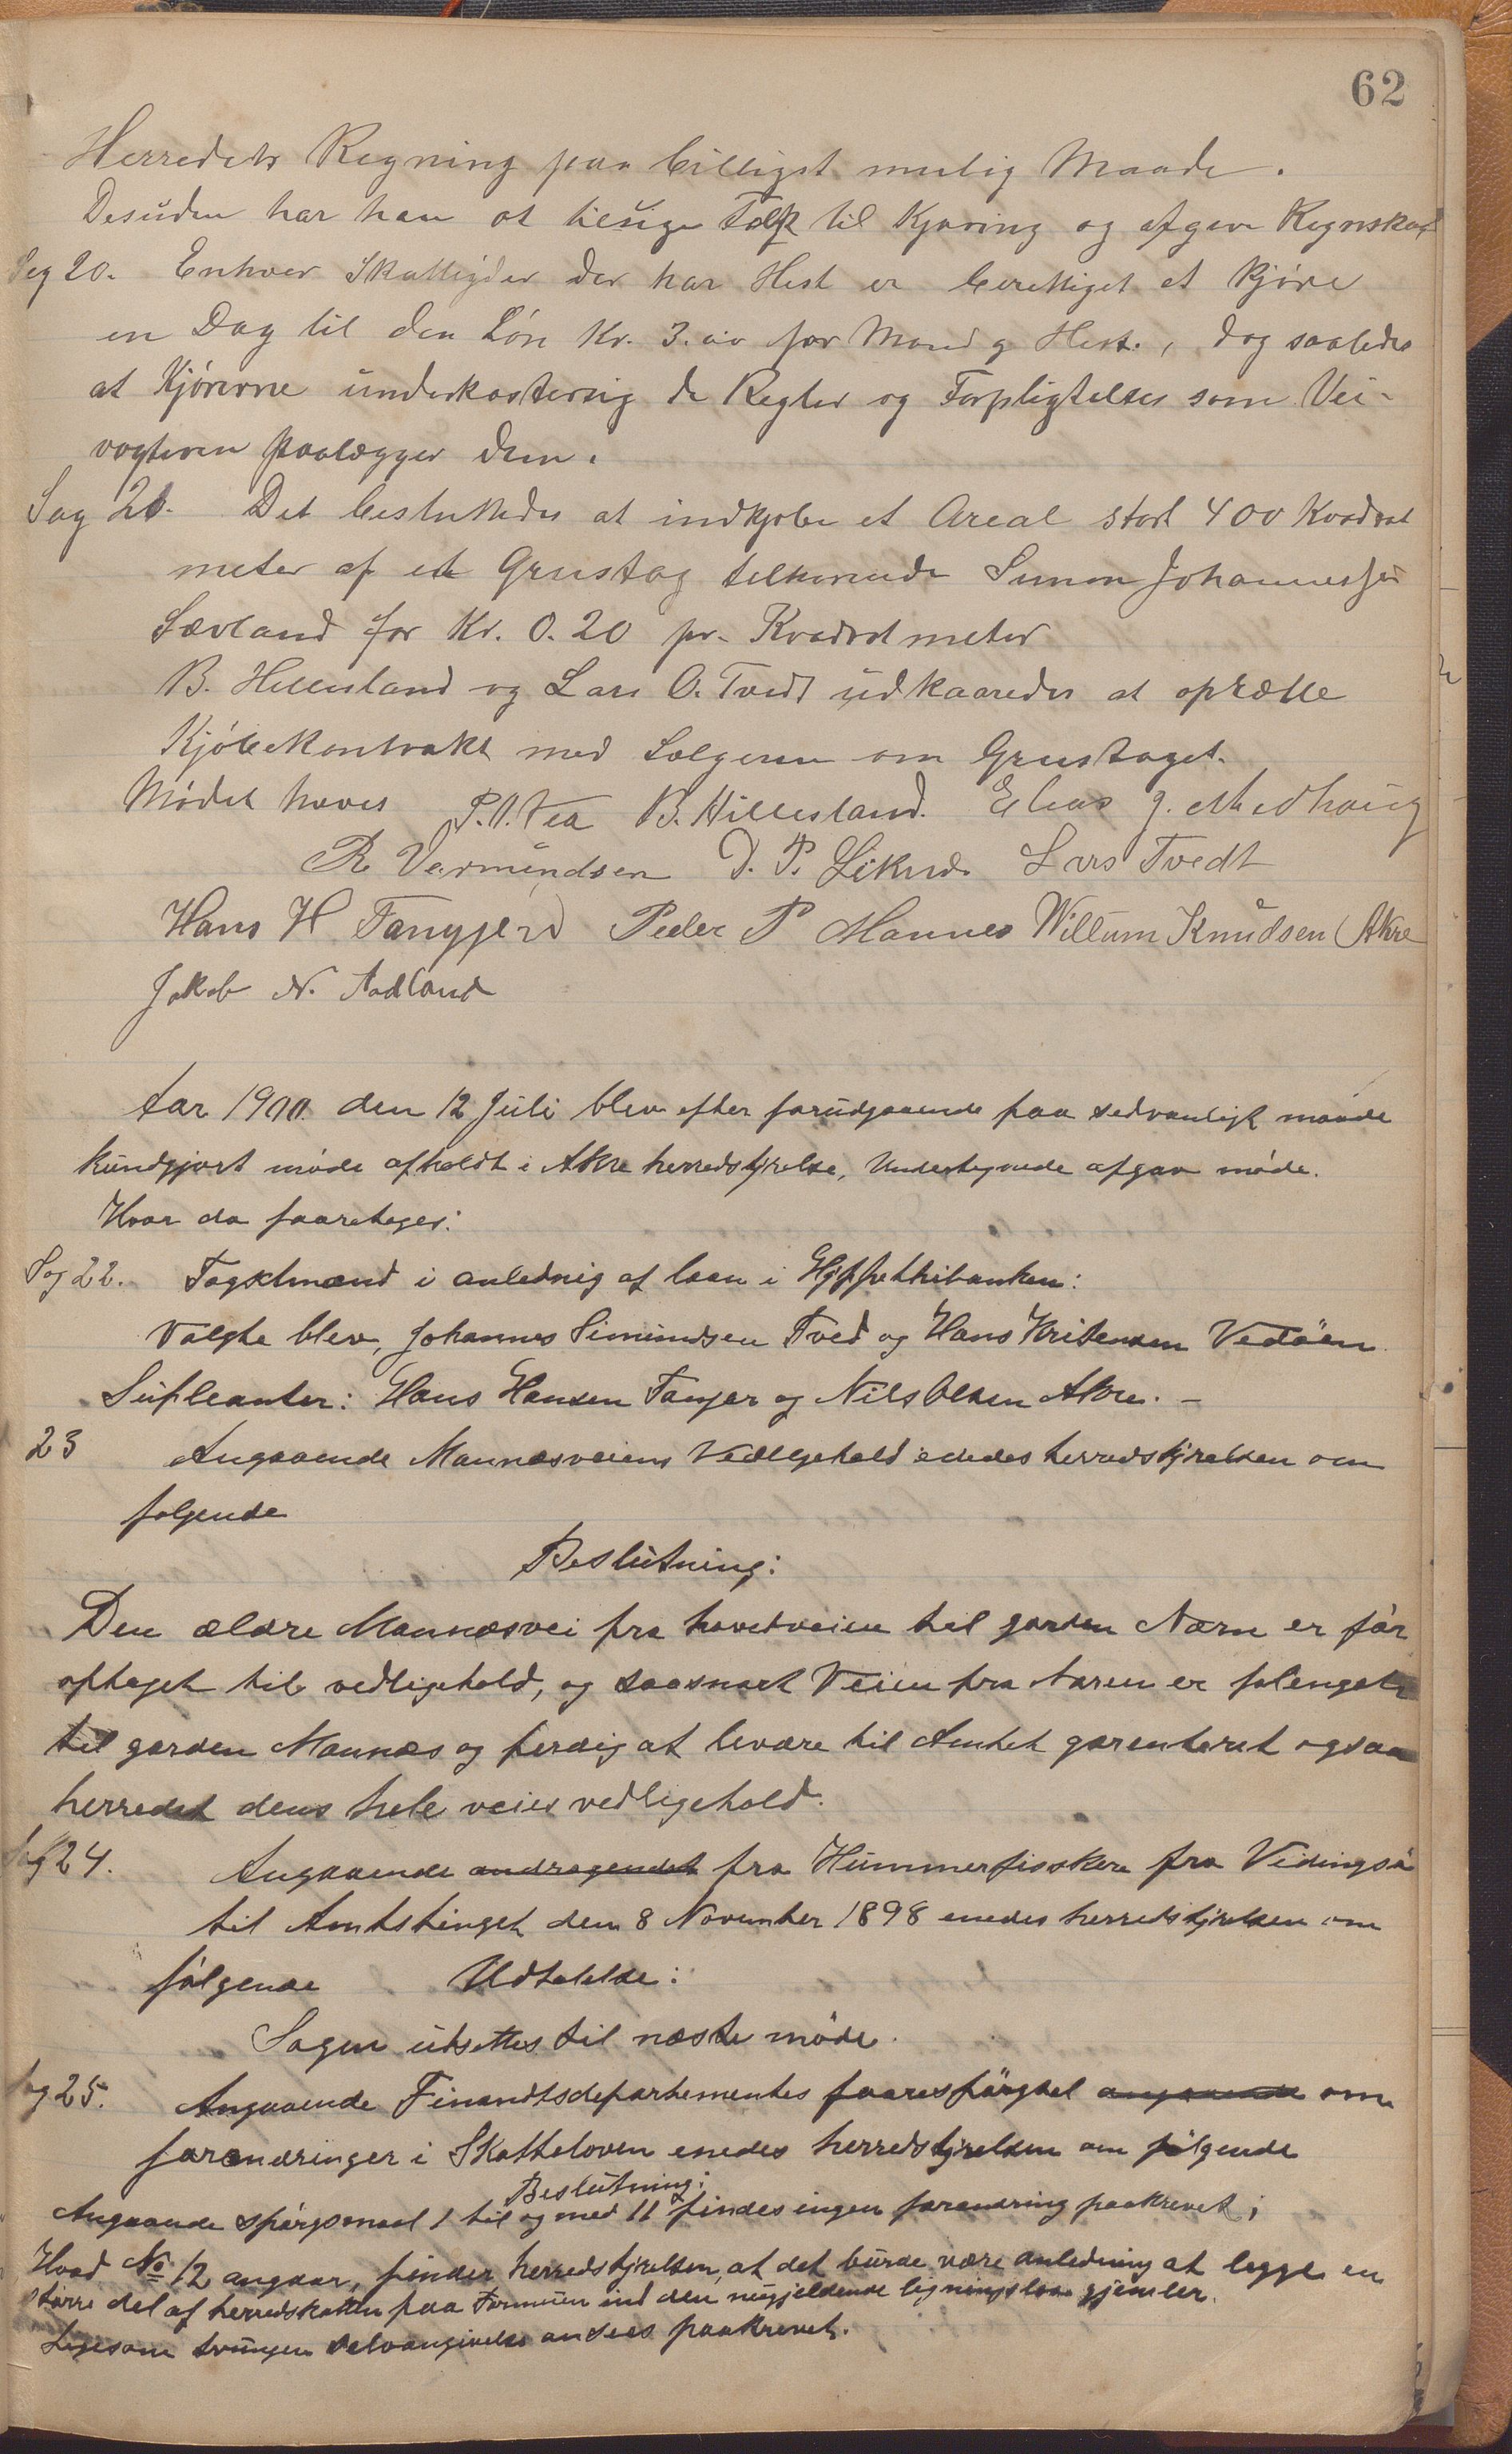 62
Herredets Regning paa billigst mulig Maade.
Desuden har han at tilsige Folk til Kjøring og afgive Regnskab
Sag 20. Enhver Skatteyder der har Hest er berettiget at kjøre
en Dag til den Løn Kr. 3.00 for Mand og Hest., dog saaledes
at Kjørerne underkastersig de Regler og Forpligtelser som Vei-
vogteren paalægger dem.
Sag 21. Det besluttedes at indkjøbe et Areal stort 400 Kvadrat
meter af et Grustag tilhørende Simon Johannessen
Sævland for Kr. 0.20 pr. Kvadratmeter
B. Hillesland og Lars O. Tvedt udkaaredes at oprætte
Kjøbekontrakt med Sælgeren om Grustaget.
Mødet hævet P.A. Vea B. Hillesland. Elias J. Medhaug
R Vermundsen D. P. Liknes Lars Tvedt
Hans H Fangjerd Peder P Mannes Willum Knudsen Akre
Jakob N. Aadland
Aar 1900. den 12 Juli blev efter forudgaaende paa sedvanligt maade
kundgjort møde afholdt i Akre herredstyrelse, Undertegnede afgav møde.
Hvor da foaretoges:
Sag 22. Tagstmænd i anledning af laan i Hyppothekbanken:
Valgte blev, Johannes Simundsen Tved og Hans Kristensen Vedøen
Supleanter: Hans Hansen Tanjer og Nils Olsen Akre. -
23 Angaaende Mannæsveiens Vedlgehold enedes herredstyrelsen om
følgende
Beslutning:
Den ældre Mannæsvei fra hovedveien til garden Nærn er før
optaget til vedligehold, og saasnart Veien fra Naren er folenget
til garden Mannæs og ferdig at levære til Amtet garenteret ogsaa
herredet dens hele veies vedligehold.
Sag 24. Angaaende andragendet fra Hummerfisskere fra Vedingsø
til Amtstinget den 8 November 1898 enedes herredstyrelsen om
følgende Udtalelse:
Sagen utsettes til næste møde.
Sag 25. Angaaende Finandtsdepartementes faarespørgsel angaaende om
forandringer i Skatteloven enedes herredstyrelsen om følgende
Beslutning:
Angaande spørgsmaal 1 til og med 11 findes ingen forandring paakrevet;
Hvad No 12 angaar, finder herredstyrelsen, at det burde være anledning at legge en
større del af herredskatten paa Formuen ind den nugjeldende ligningslov gjemler.
Ligesom tvungen selvangivelse ansees paakrevet.